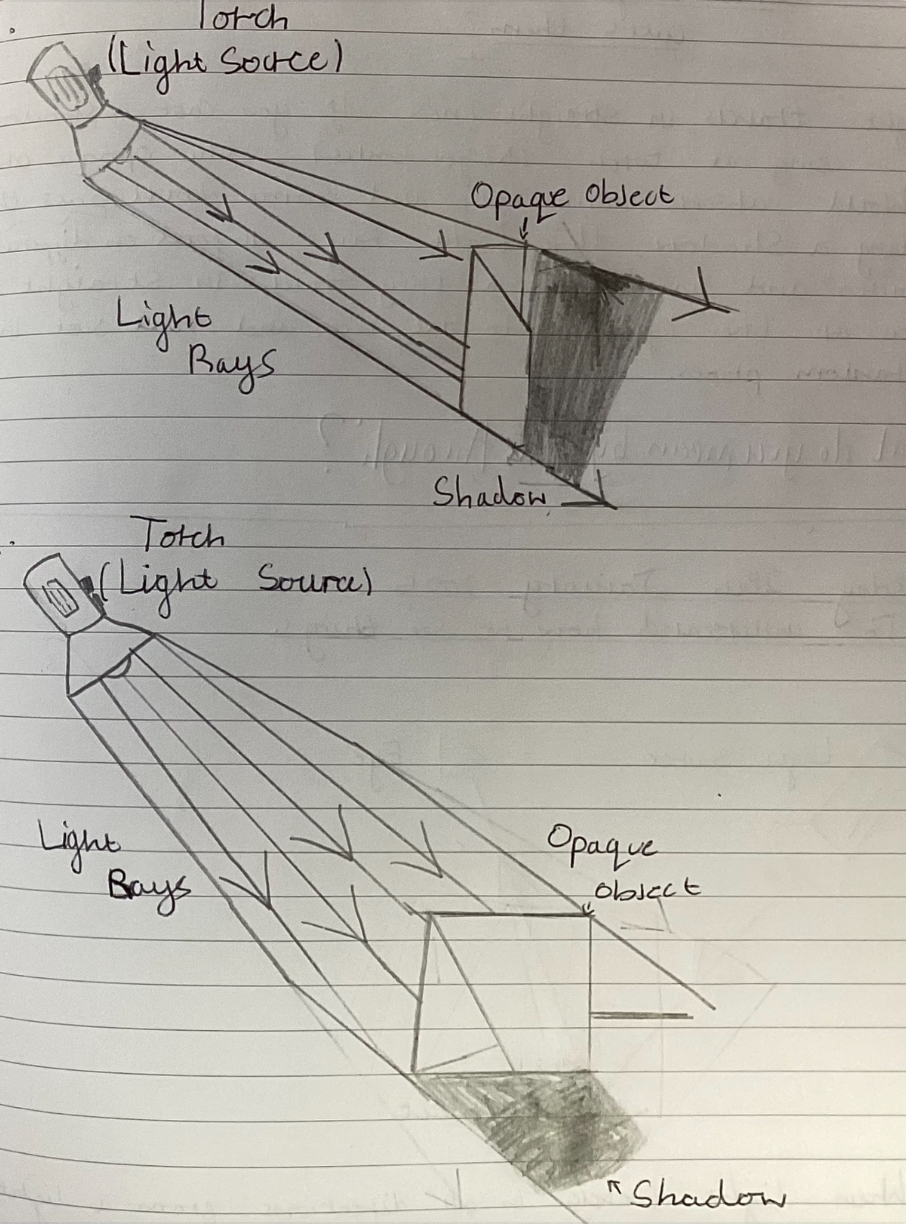 Torch
(Light Source)
Opaque Object
Light
Rays
Shadow
Torch
(Light Source)
Light
Rays
Opaque
Object
Shadow